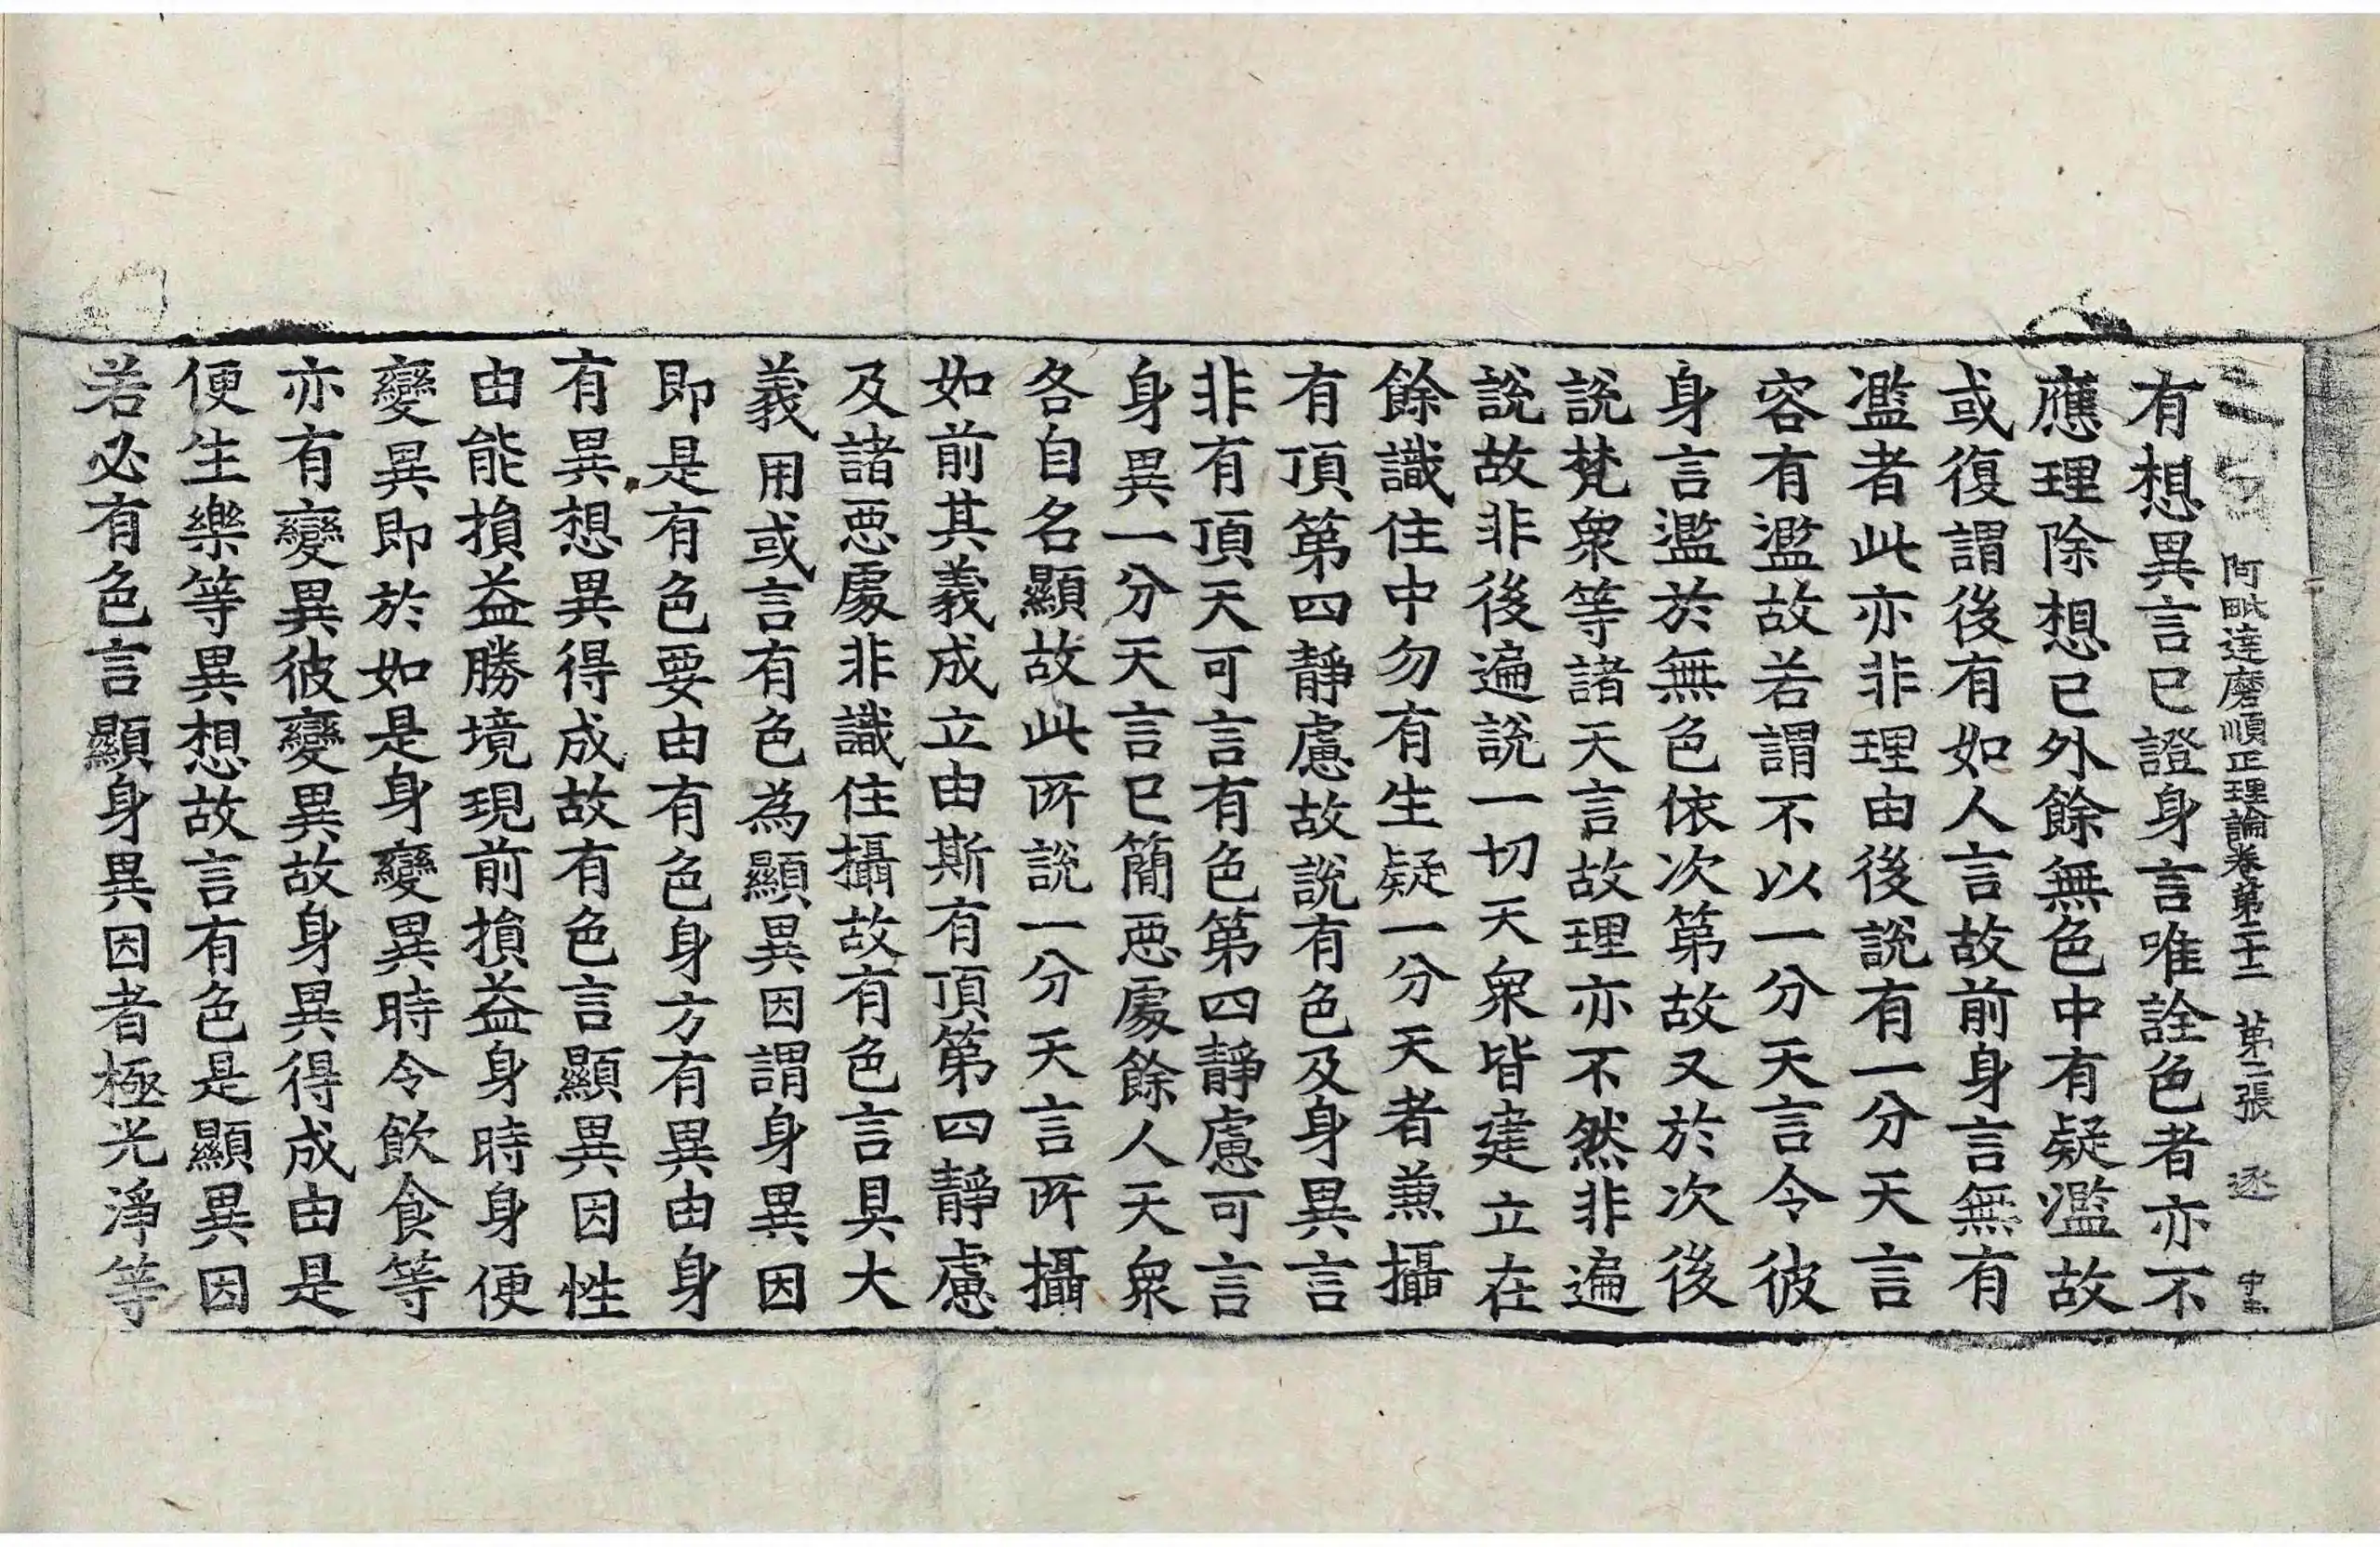 阿毗達磨順正理論卷第二十二 第二張 逐
有想異言已證身言唯詮色者亦不
應理除想已外餘無色中有疑濫故
或復謂後有如人言故前身言無有
濫者此亦非理由後說有一分天言
容有濫故若謂不以一分天言令彼
身言濫於無色依次第故又於次後
說梵衆等諸天言故理亦不然非遍
說故非後遍說一切天衆皆建立在
餘識住中勿有生疑一分天者兼攝
有頂第四靜慮故說有色及身異言
非有頂天可言有色第四靜慮可言
身異一分天言已簡惡處餘人天衆
各自名顯故此所說一分天言所攝
如前其義成立由斯有頂第四靜慮
及諸惡處非識住攝故有色言具大
義用或言有色為顯異因謂身異因
即是有色要由有色身方有異由身
有異想異得成故有色言顯異因性
由能損益勝境現前損益身時身便
變異即於如是身變異時令飲食等
亦有變異彼變異故身異得成由是
便生樂等異想故言有色是顯異因
若必有色言顯身異因者極光淨等